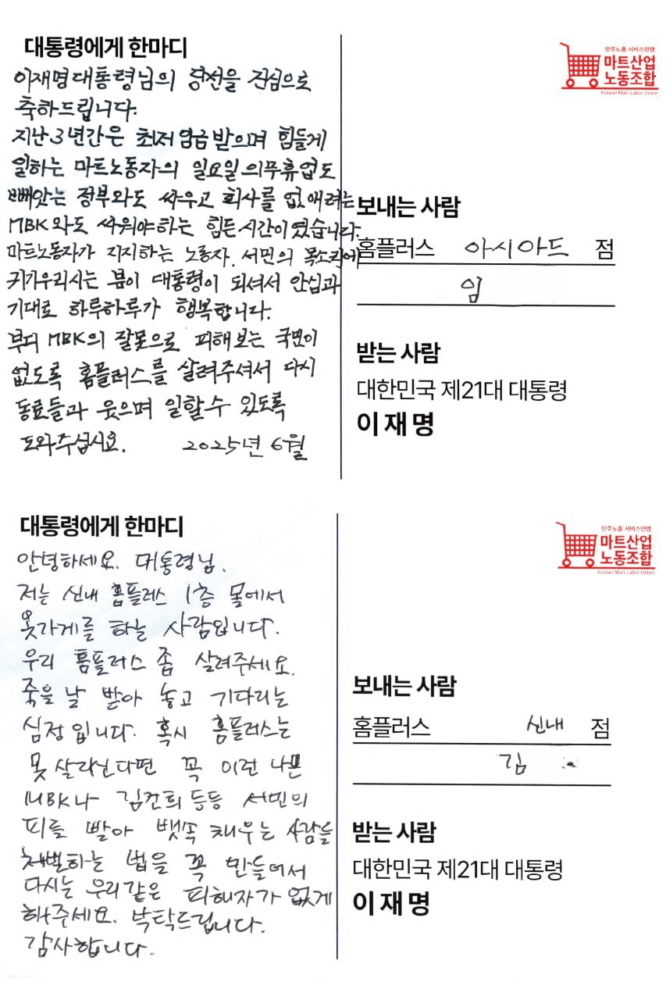 대통령에게 한마디
이재명대통령님의 당선을 진심으로
축하드립니다.
지난 3년간은 최저임금 받으며 힘들게
일하는 마트노동자의 일요일 의무휴업도
빼앗는 정부와도 싸우고 회사를 없애려는
MBK와도 싸워야하는 힘든시간이였습니다.
마트노동자가 지지하는 노동자. 서민의 목소리에
귀기우리시는 분이 대통령이 되셔서 안심과
기대로 하루하루가 행복합니다.
부디 MBK의 잘못으로 피해보는 국민이
없도록 홈플러스를 살려주셔서 다시
동료들과 웃으며 일할수 있도록
도와주십시요. 2025년 6월
민주노총 서비스연맹
마트산업
노동조합
Korean Mart Labor Union
보내는 사람
홈플러스 아시아드 점
임
받는 사람
대한민국 제21대 대통령
이재명
대통령에게 한마디
안녕하세요. 대통령님.
저는 신내 홈플레스 1층 몰에서
옷가게를 하는 사람입니다.
우리 홈플러스 좀 살려주세요.
죽을 날 받아 놓고 기다리는
심정입니다. 혹시 홈플러스는
못 살리신다면 꼭 이런 나쁜
MBK나 김건희 등등 서민의
피를 빨아 뱃속 채우는 사람들
처벌하는 법을 꼭 만들어서
다시는 우리같은 피해자가 없게
해주세요. 부탁드립니다.
감사합니다..
민주노총 서비스연맹
마트산업
노동조합
Korean Mart Labor Union
보내는 사람
홈플러스 신내 점
김
받는 사람
대한민국 제21대 대통령
이재명